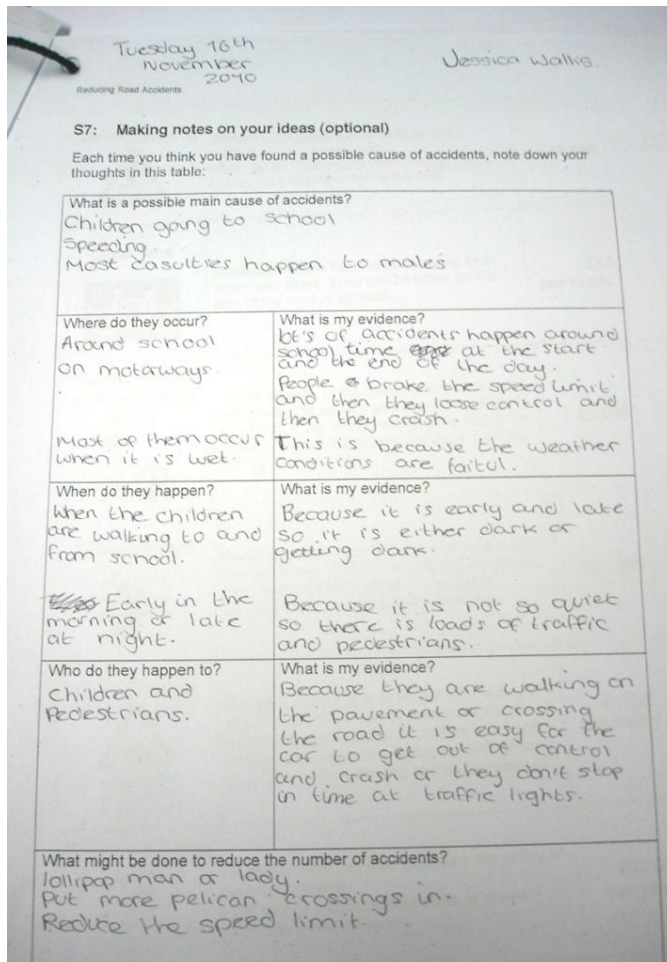 Tuesday 16th
November
2010
Jessica Wallis.
Reducing Road Accidents
S7: Making notes on your ideas (optional)
Each time you think you have found a possible cause of accidents, note down your
thoughts in this table:
What is a possible main cause of accidents?
Children going to school
Speeding.
Most casulties happen to males
Where do they occur?
Around school
on motorways.
Most of them occur
when it is wet.
What is my evidence?
lot's of accidents happen around
school time at the start
and the end of the day.
People brake the speed limit
and then they loose control and
then they crash.
This is because the weather
conditions are faitul.
When do they happen?
When the children
are walking to and
from school.
Early in the
morning or late
at night.
What is my evidence?
Because it is early and late
so it is either dark or
getting dark.
Because it is not so quiet
so there is loads of traffic
and pedestrians.
Who do they happen to?
Children and
Pedestrians.
What is my evidence?
Because they are walking on
the pavement or crossing
the road it is easy for the
car to get out of control
and crash or they don't stop
in time at traffic lights.
What might be done to reduce the number of accidents?
lollipop man or lady.
Put more pelican crossings in.
Reduce the speed limit.